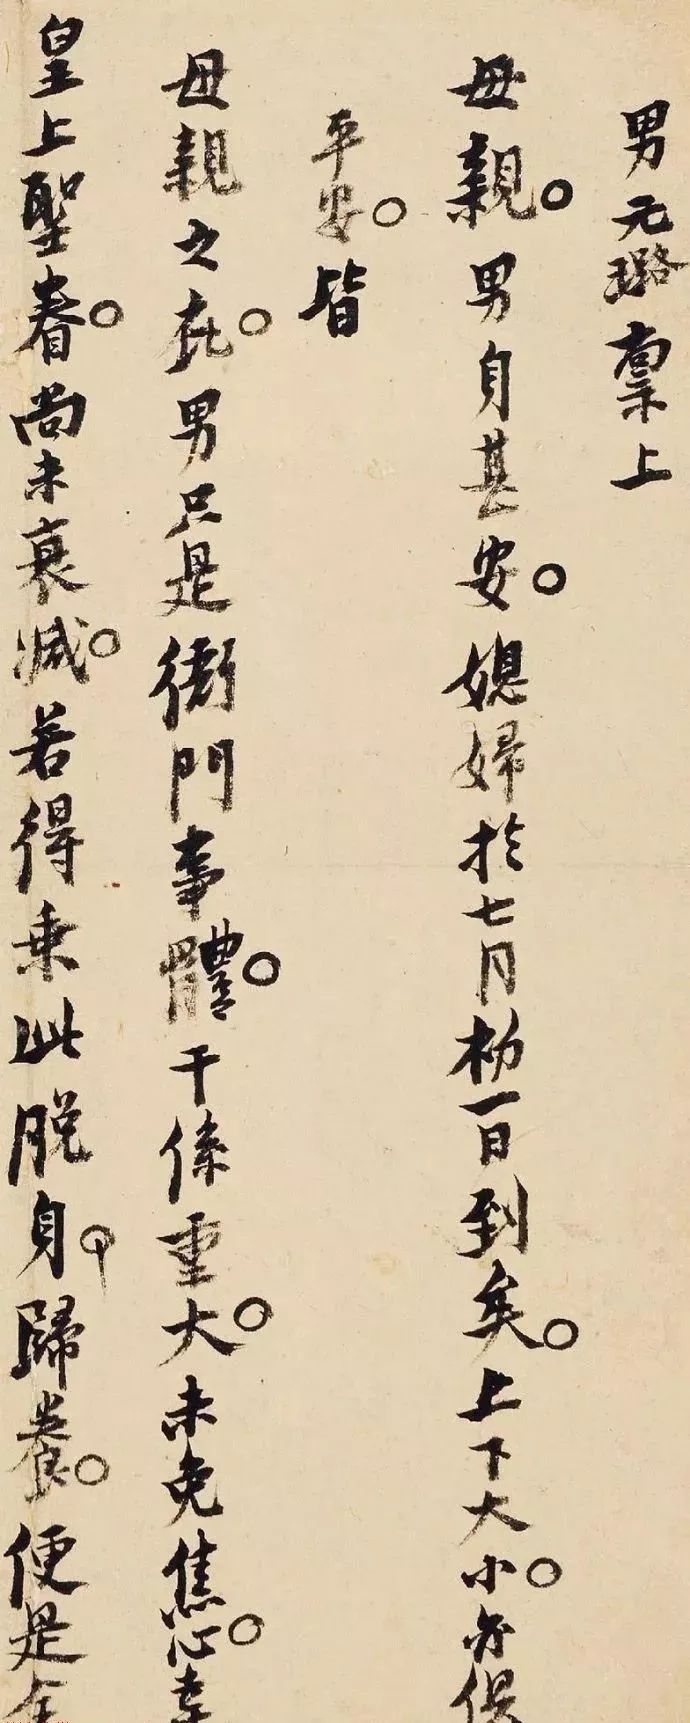 男元璐稟上
母親。男自甚安。媳婦於七月初一日到矣。上下大小。亦俱
平安。皆
母親之庇。男只是衙門事體。干係重大。未免焦心。幸
皇上聖眷。尚未衰減。若得乘此脫身歸養。便是全